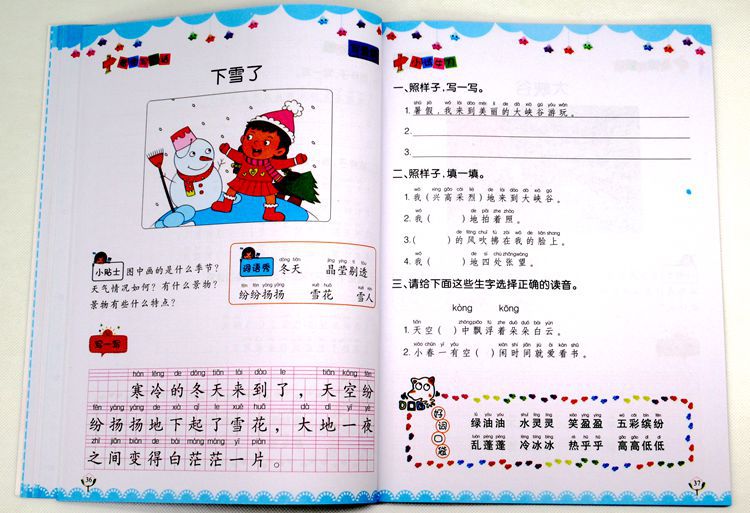 下雪了
小贴士 图中画的是什么季节?
天气情况如何?有什么景物?
景物有些什么特点?
词语秀
dōng tiān jīng yíng tī tòu
冬天 晶莹剔透
fēn fēn yáng yáng xuě huā xuě rén
纷纷扬扬 雪花 雪人
写一写
hán lěng de dōng tiān lái dào le tiān kōng fēn
寒冷的冬天来到了，天空纷
fēn yáng yáng de xià qǐ le xuě huā dà dì yī yè
纷扬扬地下起了雪花，大地一夜
zhī jiān biàn de bái máng máng yī piàn
之间变得白茫茫一片。
36
一、照样子,写一写。
shǔ jià wǒ lái dào měi lì de dà xiá gǔ yóu wán
1. 暑假,我来到美丽的大峡谷游玩。
2.
3.
二、照样子,填一填。
wǒ xìng gāo cǎi liè de lái dào dà xiá gǔ
1. 我(兴高采烈)地来到大峡谷。
wǒ de pāi zhe zhào
2. 我( )地拍着照。
de fēng chuī fú zài wǒ de liǎn shang
3. ( )的风吹拂在我的脸上。
wǒ de sì chù zhāng wàng
4. 我( )地四处张望。
三、请给下面这些生字选择正确的读音。
kòng kōng
tiān zhōng piāo fú zhe duǒ duǒ bái yún
1. 天空( )中飘浮着朵朵白云。
xiǎo chūn yī yǒu xián shí jiān jiù ài kàn shū
2. 小春一有空( )闲时间就爱看书。
好词口袋
绿油油 水灵灵 笑盈盈 五彩缤纷
乱蓬蓬 冷冰冰 热乎乎 高高低低
37